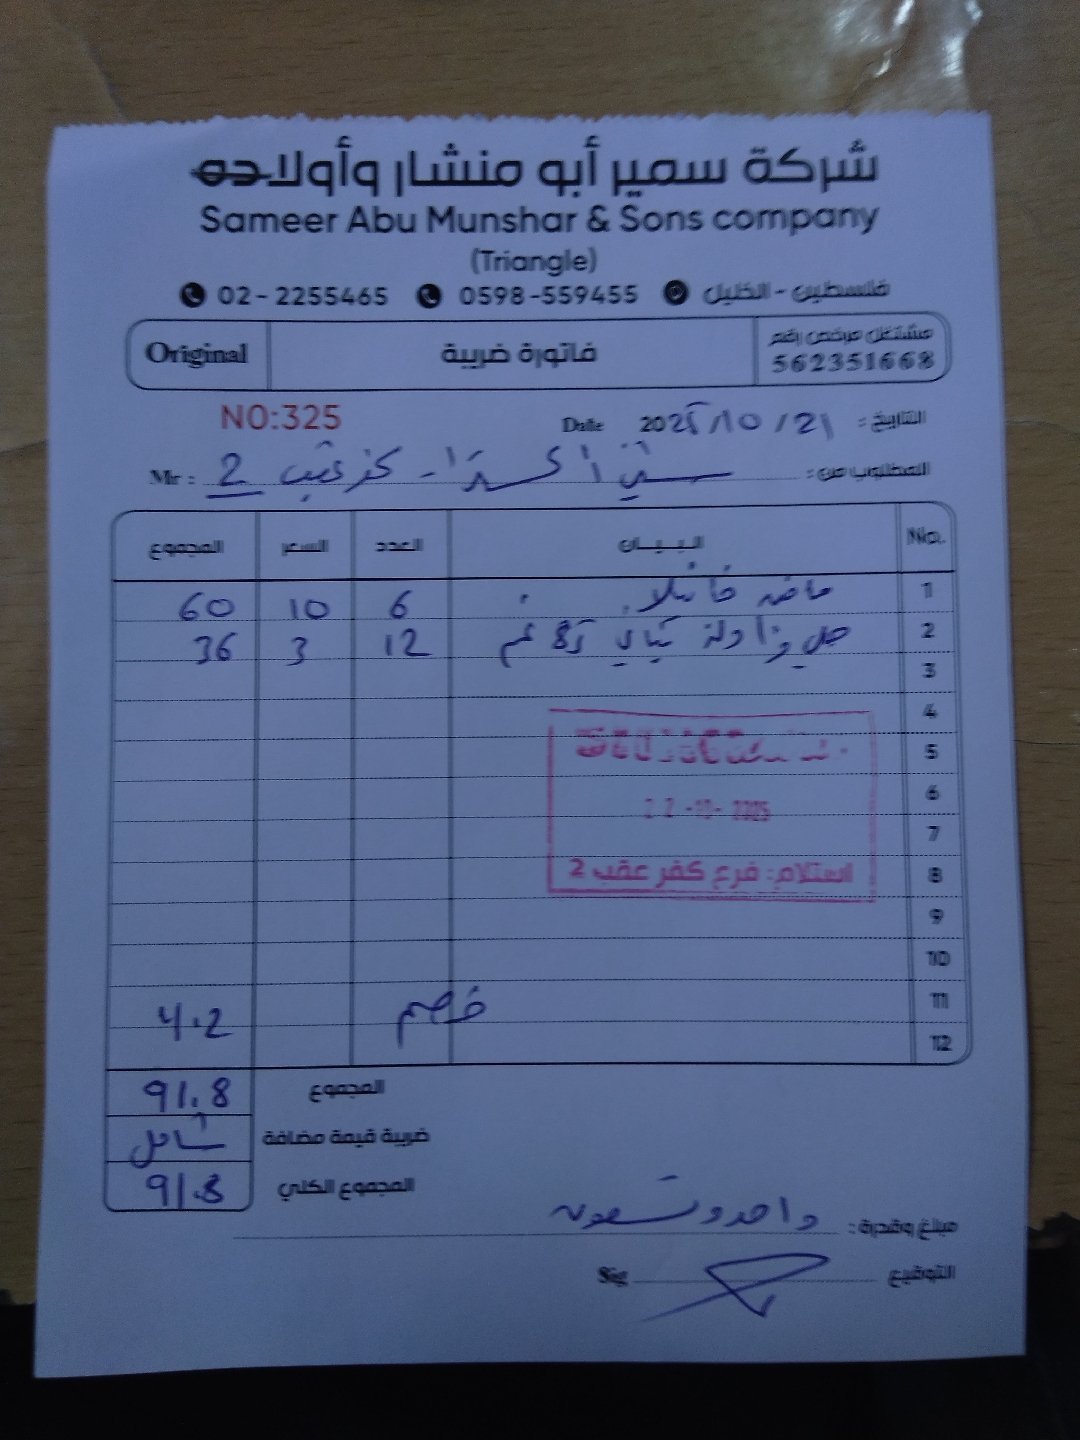 شركة سمير أبو منشار وأولاده
Sameer Abu Munshar & Sons company
(Triangle)
فلسطين - الخليل 0598-559455 02-2255465
مشتغل مرخص رقم
562351668
فاتورة ضريبة
Original
التاريخ : 2025/10/21 Date
NO:325
المطلوب من : 2 Mr :
No. البيـــان العدد السعر المجموع
1 فانيلا 6 10 60
2 12 3 36
3
4
5
22-10-2025
6
7
استلام: فرع كفر عقب 2
8
9
10
11 خصم 4.2
12
المجموع 91.8
ضريبة قيمة مضافة شامل
المجموع الكلي 91.8
مبلغ وقدرة : واحد وتسعون
التوقيع Sig